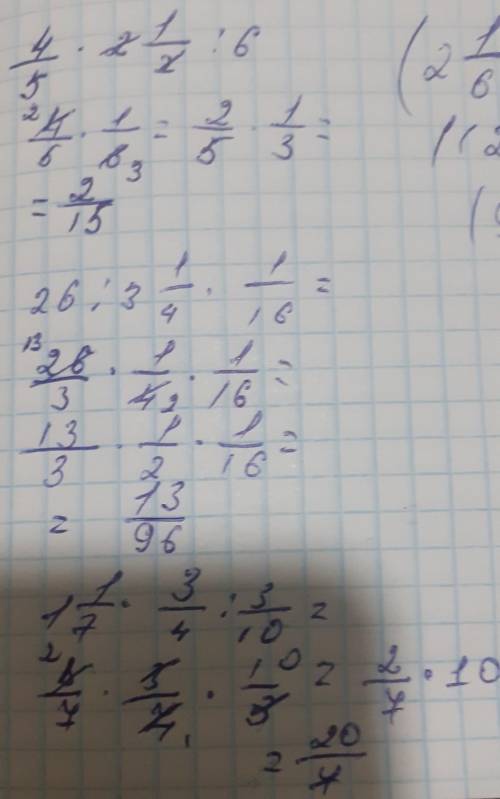 4/5 · 2 1/2 : 6
2 4/5 · 1/6 3 = 2/5 · 1/3 =
= 2/15
26 : 3 1/4 · 1/16 =
13 26/3 · 1/4 2 · 1/16 =
13/3 · 1/2 · 1/16 =
= 13/96
1 1/7 · 3/4 : 3/10 =
2 8/7 · 3/4 1 · 10/3 = 2/7 · 10
= 20/7
(2 1/6